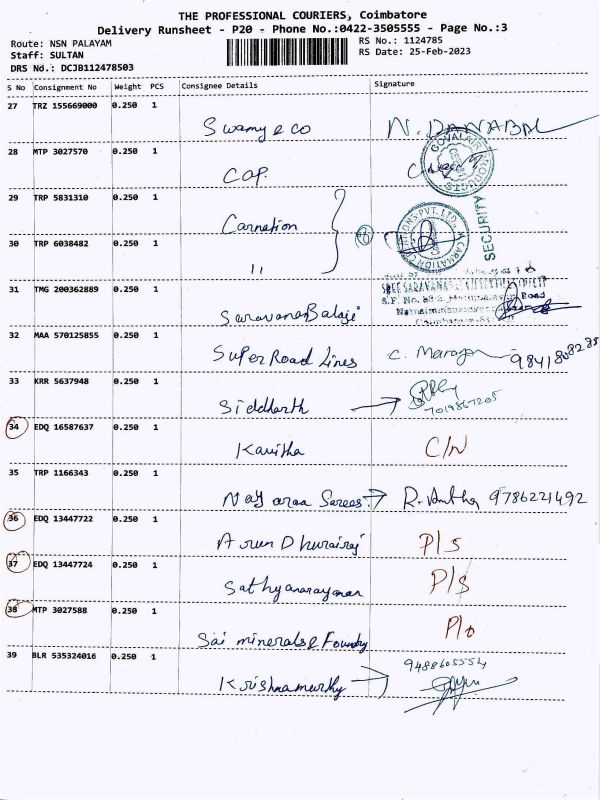 THE PROFESSIONAL COURIERS, Coimbatore
Delivery Runsheet - P20 - Phone No.:0422-3505555 - Page No.:3
Route: NSN PALAYAM
Staff: SULTAN
DRS No.: DCJB112478503
RS No.: 1124785
RS Date: 25-Feb-2023
S No Consignment No Weight PCS Consignee Details Signature
27 TRZ 155669000 0.250 1
Swamy & co N. DANABAL
28 MTP 3027570 0.250 1
COP.
29 TRP 5831310 0.250 1
Carnation
SECURITY
30 TRP 6038482 0.250 1
"
31 TMG 200362889 0.250 1
Saravana Balaji
Road
32 MAA 570125855 0.250 1
Super Road Lines C.
33 KRR 5637948 0.250 1
Siddharth → 7019867205
34 EDQ 16587637 0.250 1
Kavitha C/N
35 TRP 1166343 0.250 1
Sarees. → 9786221492
36 EDQ 13447722 0.250 1
Arun Dhurairaj P/S
37 EDQ 13447724 0.250 1
Sathyanarayanan P/S
38 MTP 3027588 0.250 1
Sai minerals & Foundry
39 BLR 535324016 0.250 1
Krishnamurthy →